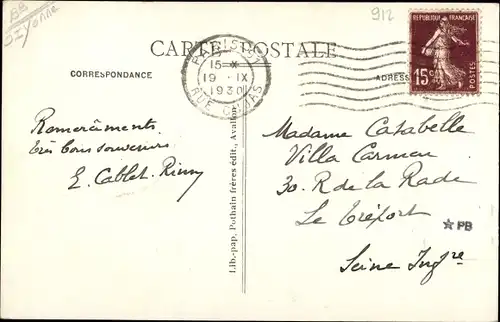 BB
S/Yonne
912
CARTE POSTALE
CORRESPONDANCE
ADRESSE
REPUBLIQUE FRANÇAISE
15 c
POSTES
PARIS
15 *
19 IX
1930
RUE CUJAS
Remerciments
très bons souvenirs
E. Cablet-Rinn
Lib.-pap. Pothain frères édit., Avallon
Madame Casabelle
Villa Carmen
30. R de la Rade
Le Tréport
Seine Infre
★ PB